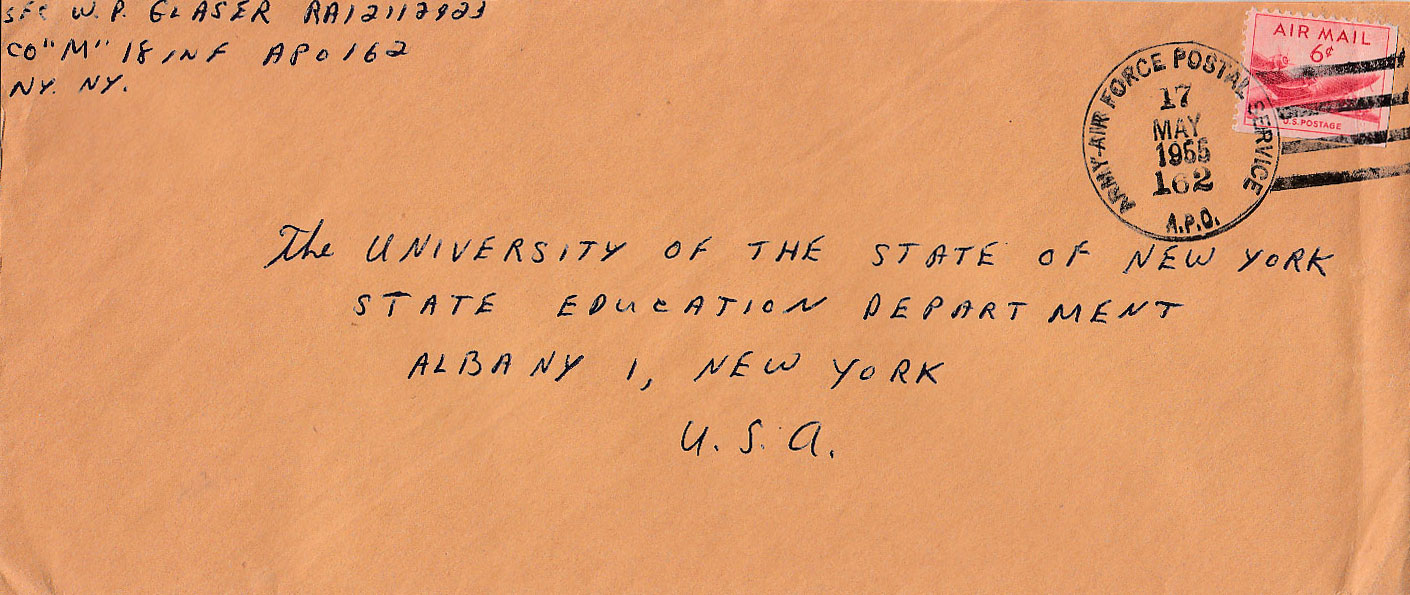 SFC W. P. GLASER RA12117923
CO "M" 18 INF APO 162
NY. NY.
AIR MAIL
6¢
U.S. POSTAGE
ARMY-AIR FORCE POSTAL SERVICE
17
MAY
1955
162
A.P.O.
The UNIVERSITY OF THE STATE OF NEW YORK
STATE EDUCATION DEPARTMENT
ALBANY 1, NEW YORK
U. S. A.